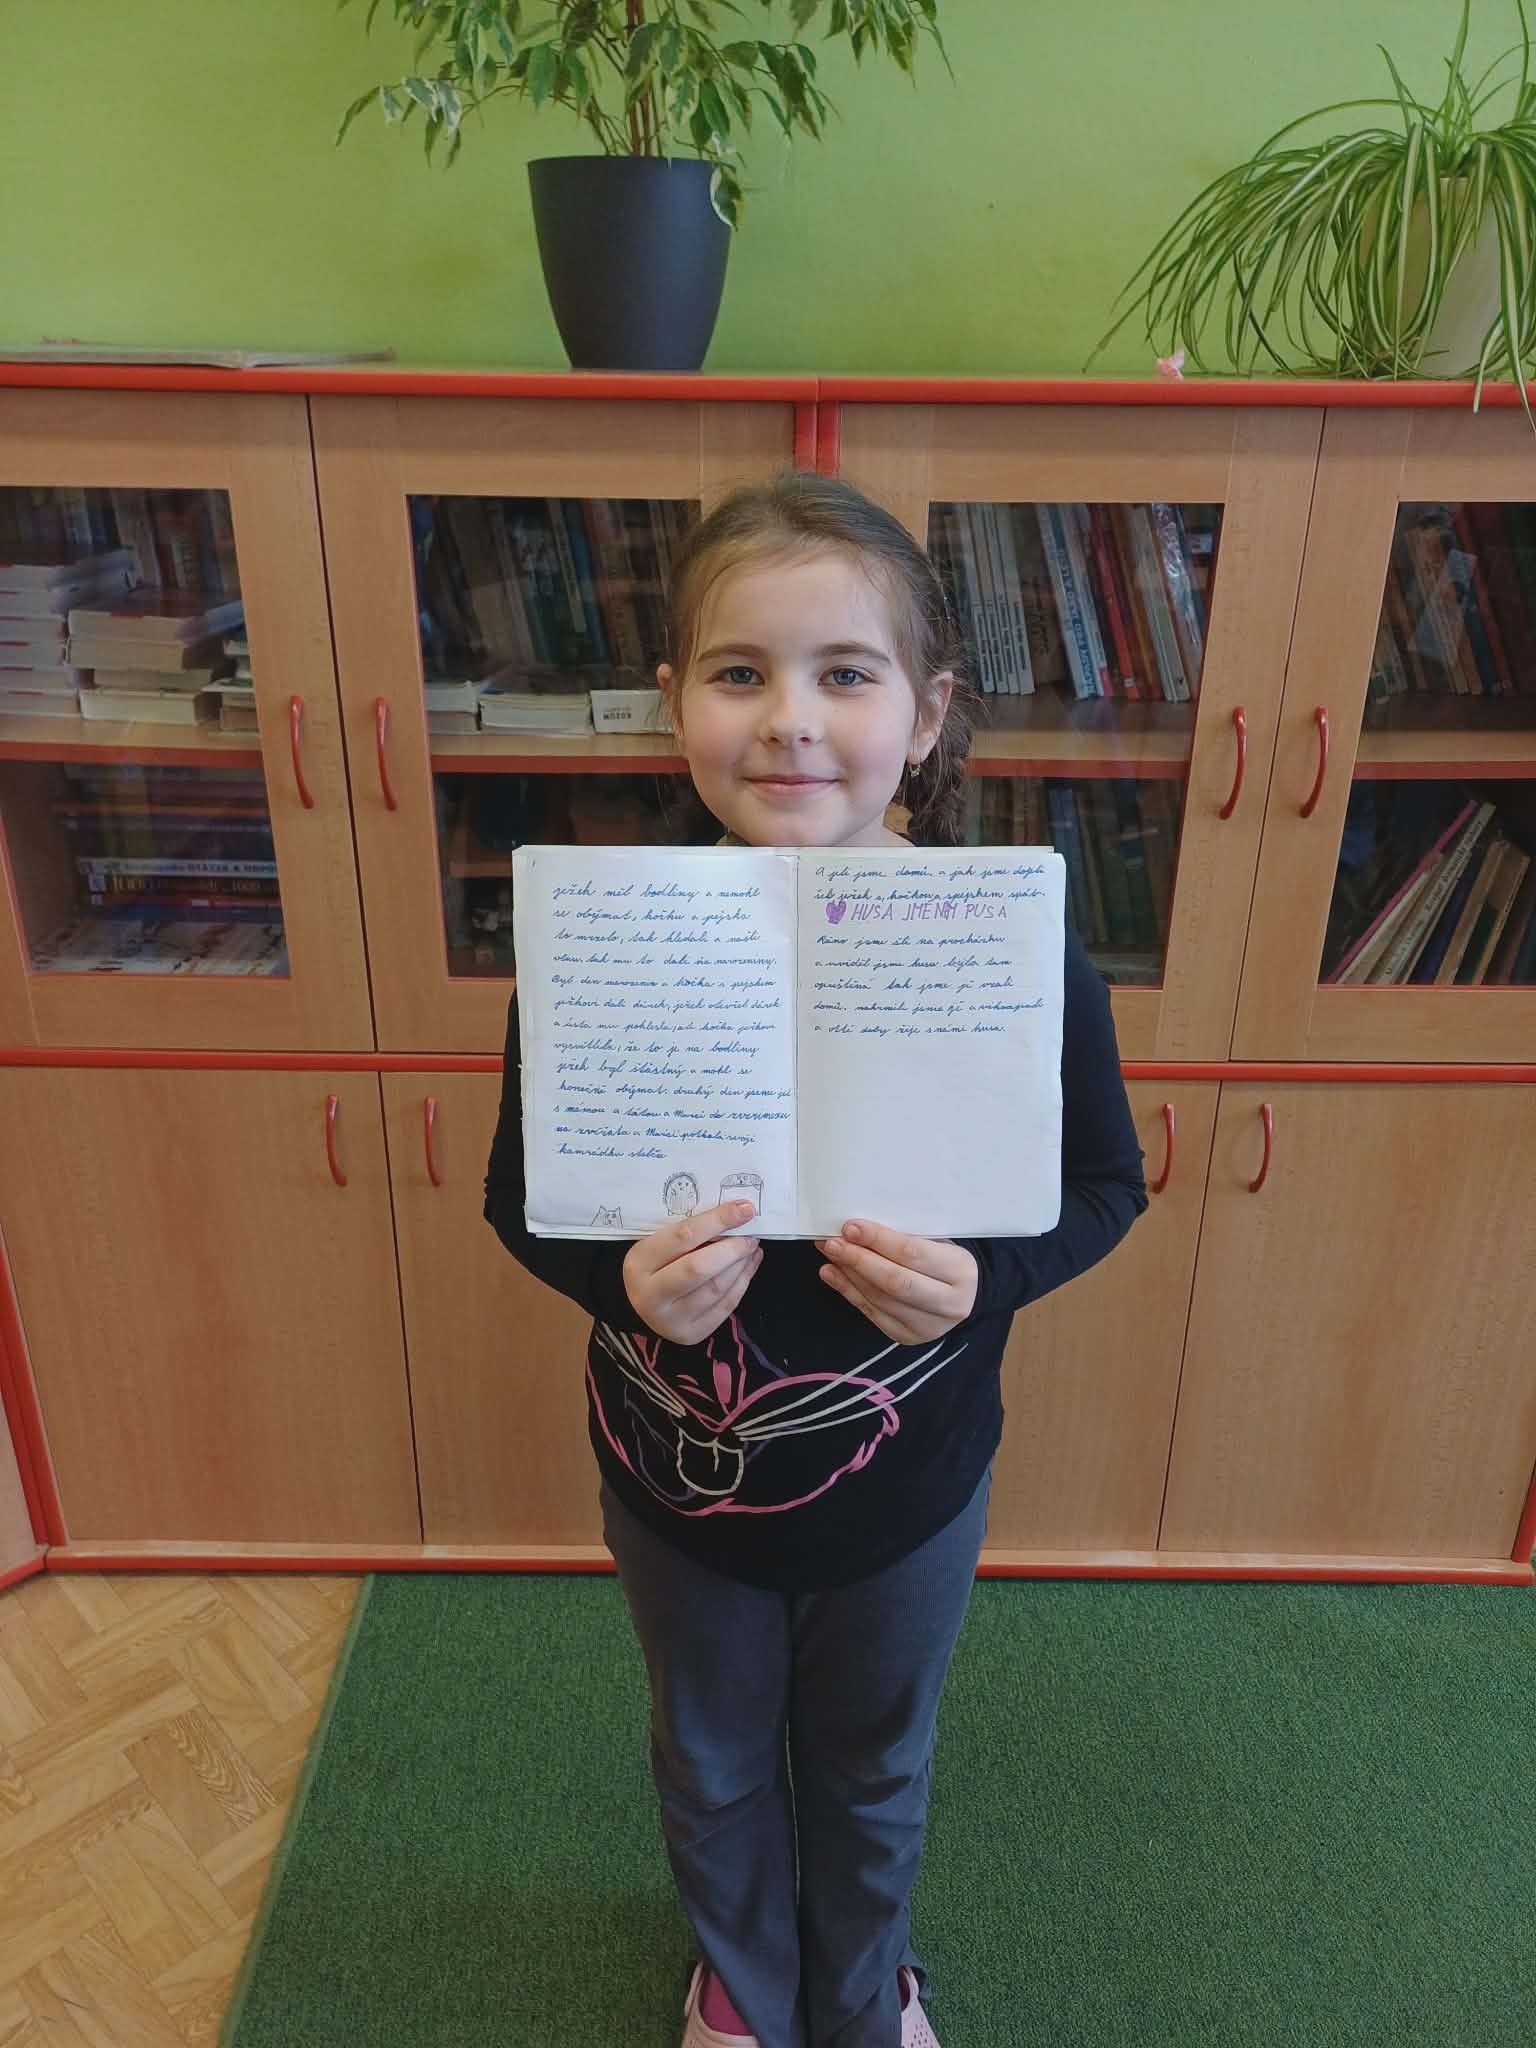 ježek měl bodliny a nemohl
se obýmat, kočku a pejska
to mrzelo, tak hledali a našli
vlnu. tak mu to dali na narozeniny.
Byl den narozenin a kočka s pejskem
ježkovi dali dárek, ježek otevřel dárek
a ústa mu poklesla, ale kočka ježkovi
vysvětlila, že to je na bodliny
ježek byl šťastný a mohl se
konečně obýmat. druhý den jsme jeli
s mámou a tátou a Marcí do
na zvířata a Marcí potkala svojí
kamrádku
A jeli jsme domů. a jak jsme dojeli
šel ježek s kočkou a spejskem spát.
HUSA JMÉNEM PUSA
Ráno jsme šli na procházku
a uviděli jsme husu byla tam
opuštěná tak jsme jí vzali
domů. nakrmili jsme jí a
a od té doby žije s námi husa.
ROZUM